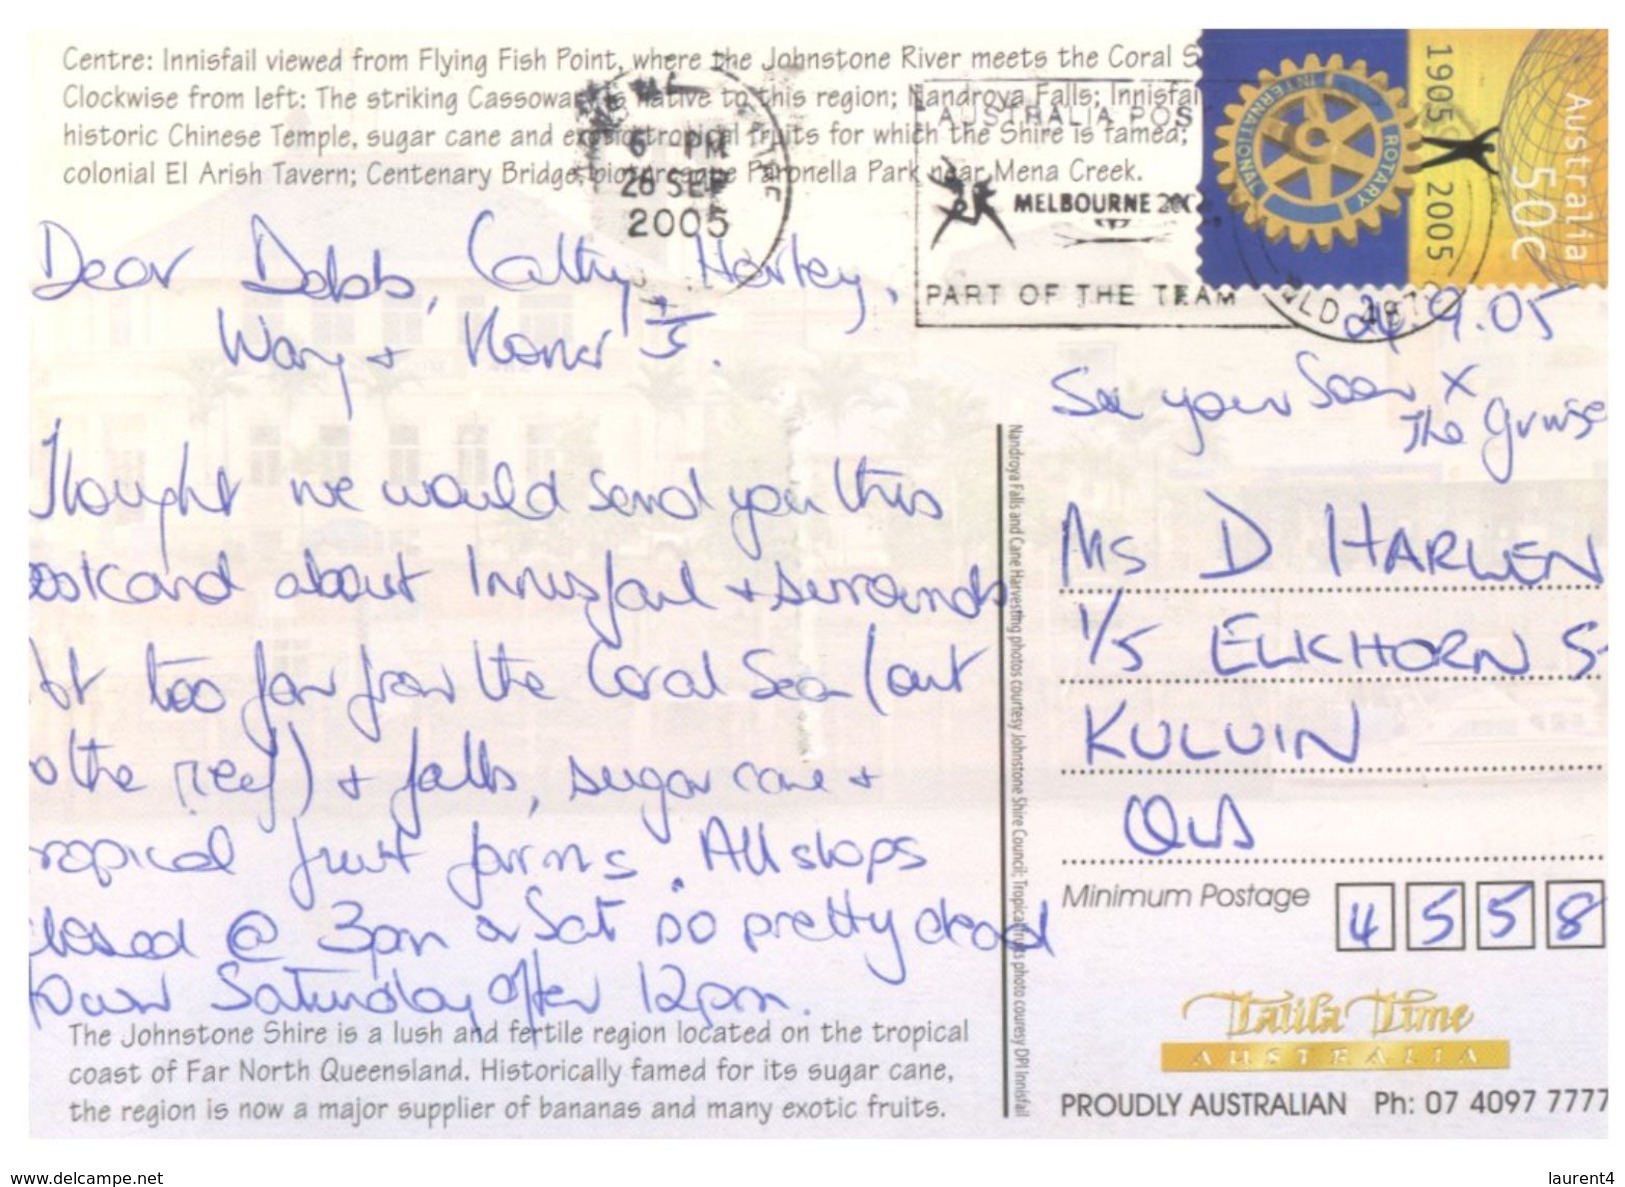 Centre: Innisfail viewed from Flying Fish Point, where the Johnstone River meets the Coral S
Clockwise from left: The striking Cassowa is native to this region; Nandroya Falls; Innisfai
historic Chinese Temple, sugar cane and exotic tropical fruits for which the Shire is famed;
colonial El Arish Tavern; Centenary Bridge; picturesque Paronella Park near Mena Creek.
6 PM
26 SEP
2005
AUSTRALIA POS
MELBOURNE 200
PART OF THE TEAM
ROTARY
INTERNATIONAL
1905 2005
Australia
50c
QLD 487
Dear Debb, Cathy, Harley,
+ 5.
.9.05
See your soon x
The
Thought we would send you this
ostcard about Innisfail + surrounds
ot too far from the Coral Sea (out
o the reef) + falls, sugar cane +
ropical fruit farms. All shops
closed @ 3pm Sat so pretty dead
Saturday after 12pm.
The Johnstone Shire is a lush and fertile region located on the tropical
coast of Far North Queensland. Historically famed for its sugar cane,
the region is now a major supplier of bananas and many exotic fruits.
Nandroya Falls and Cane Harvesting photos courtesy Johnstone Shire Council; Tropical fruits photo couresy DPI Innisfail
Ms D HARLEN
1/5 ELKHORN S
KULUIN
QLD
Minimum Postage
4 5 5 8
Taiila Time
AUSTRALIA
PROUDLY AUSTRALIAN Ph: 07 4097 7777
www.delcampe.net
laurent4